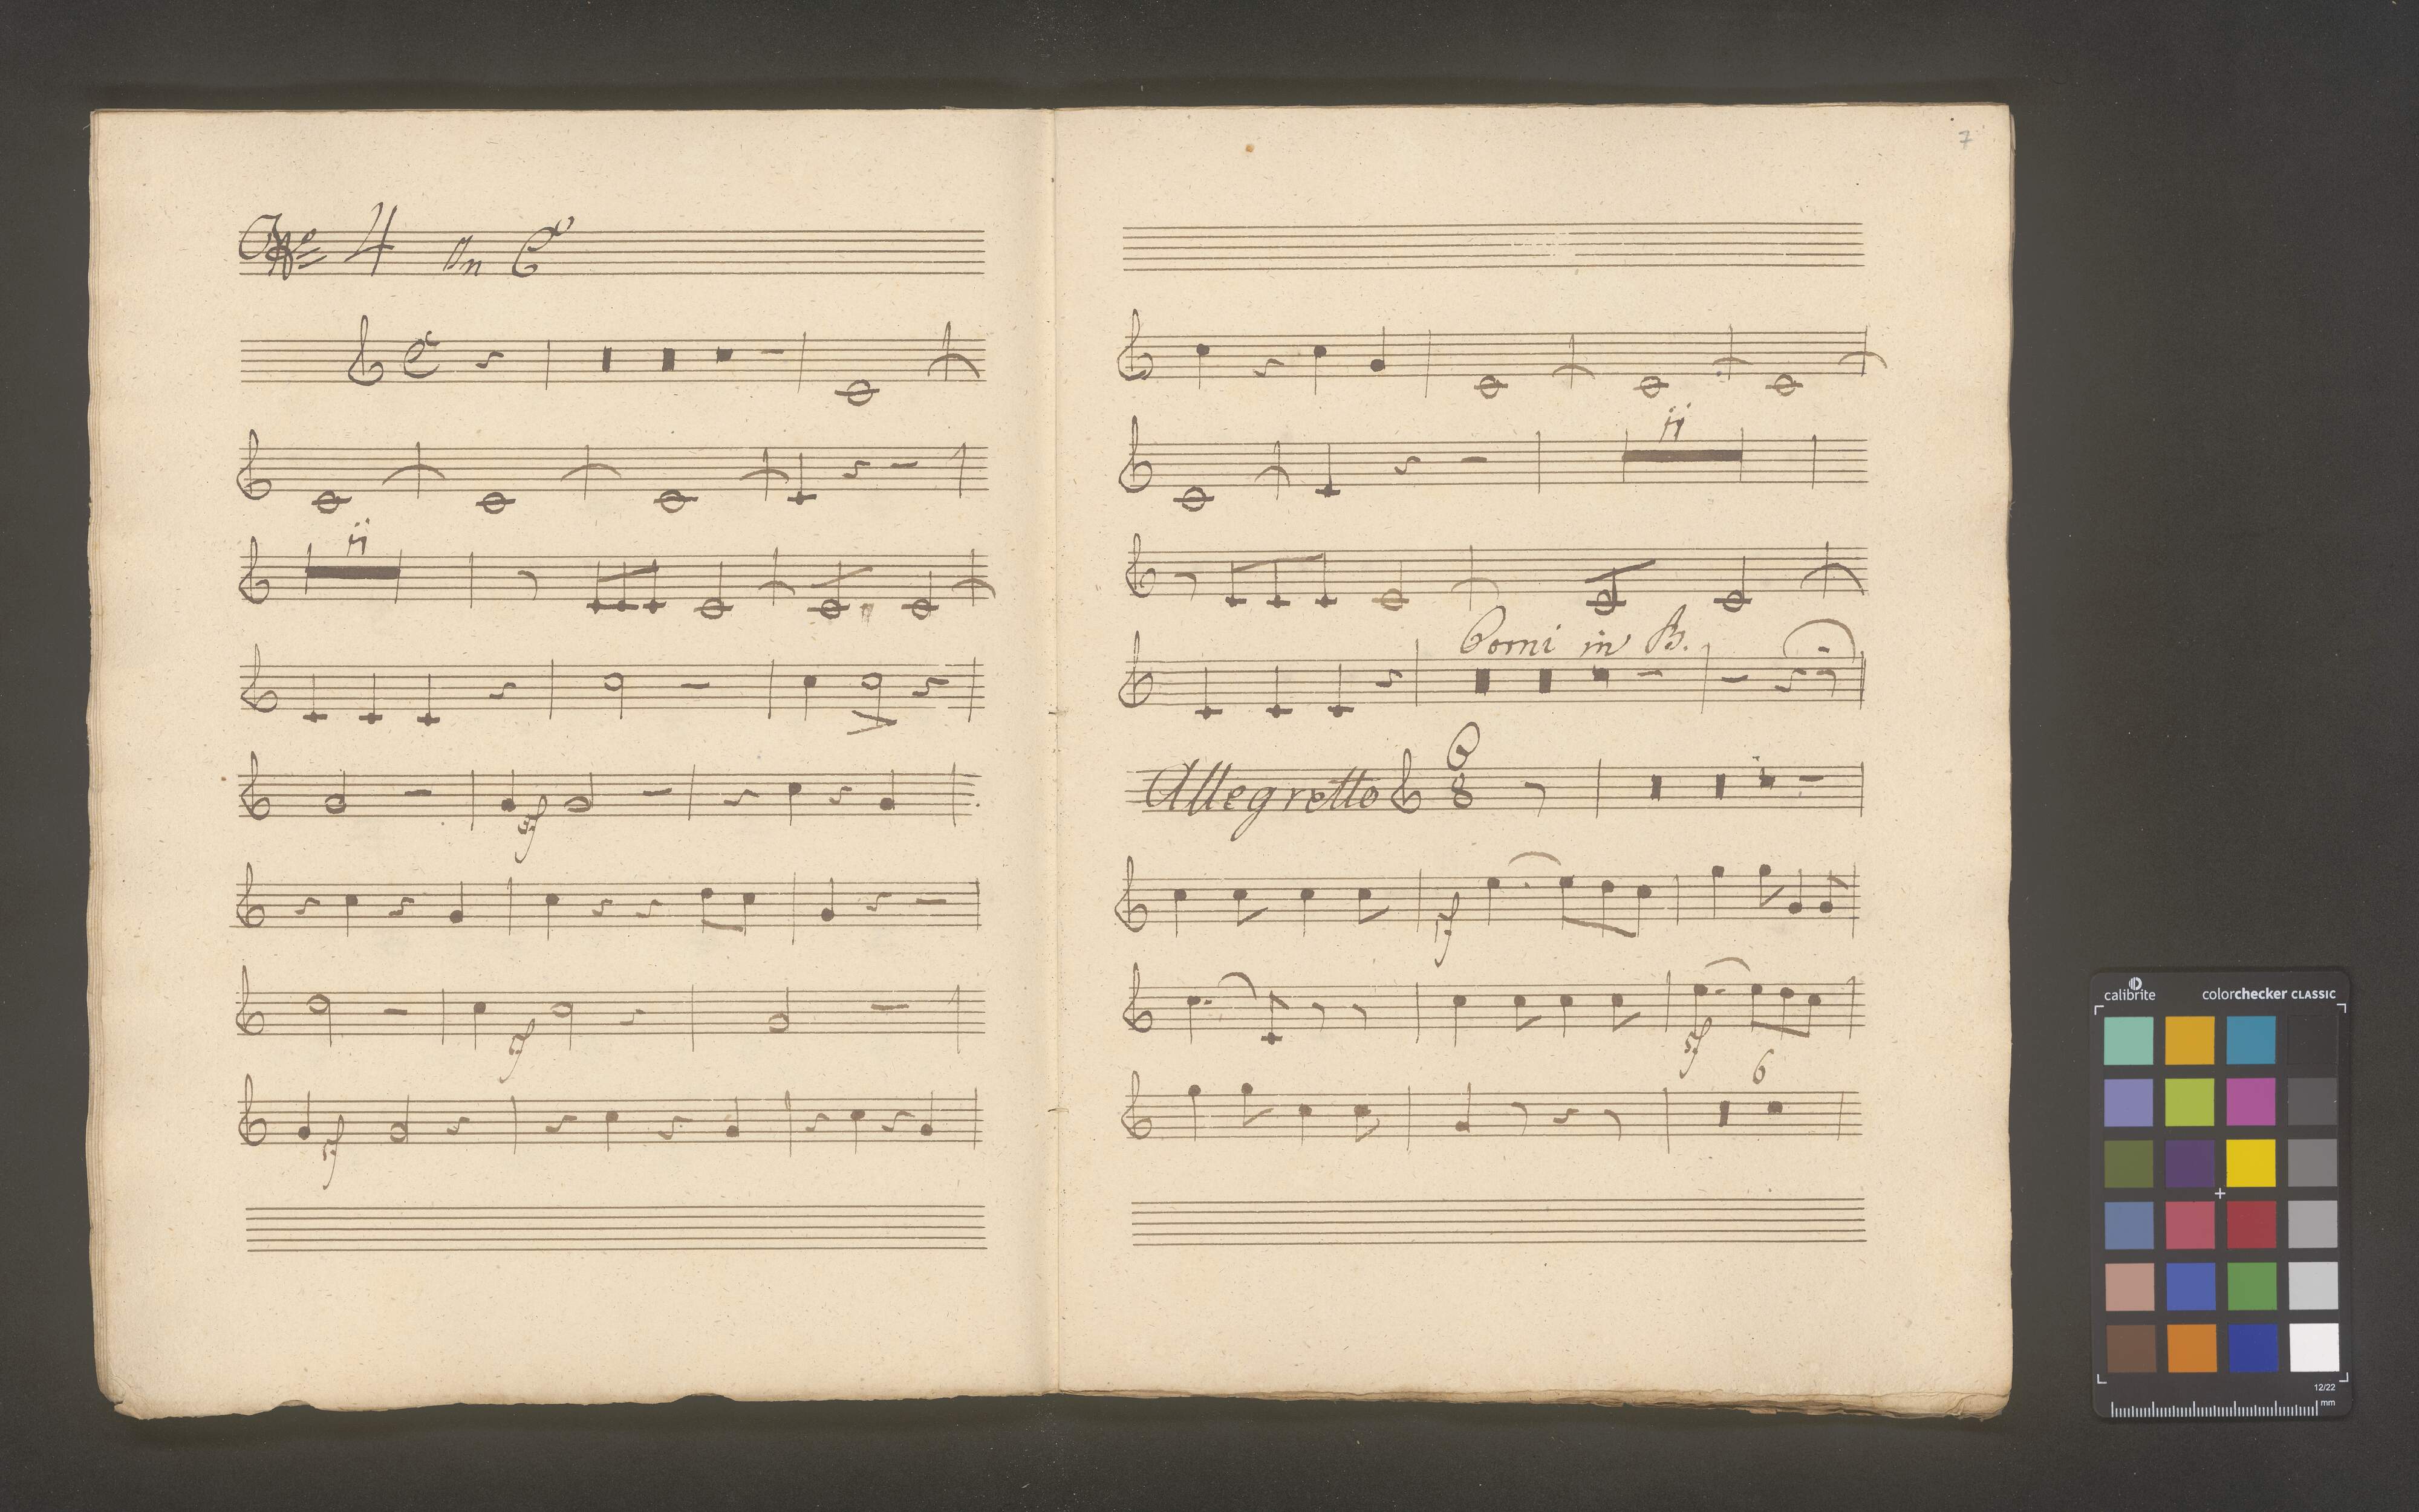 No 4 In C
ii
sf
sf
sf
7
ii
Corni in B.
Allegretto 6
8
sf
sf
6
calibrite colorchecker CLASSIC
12/22
mm